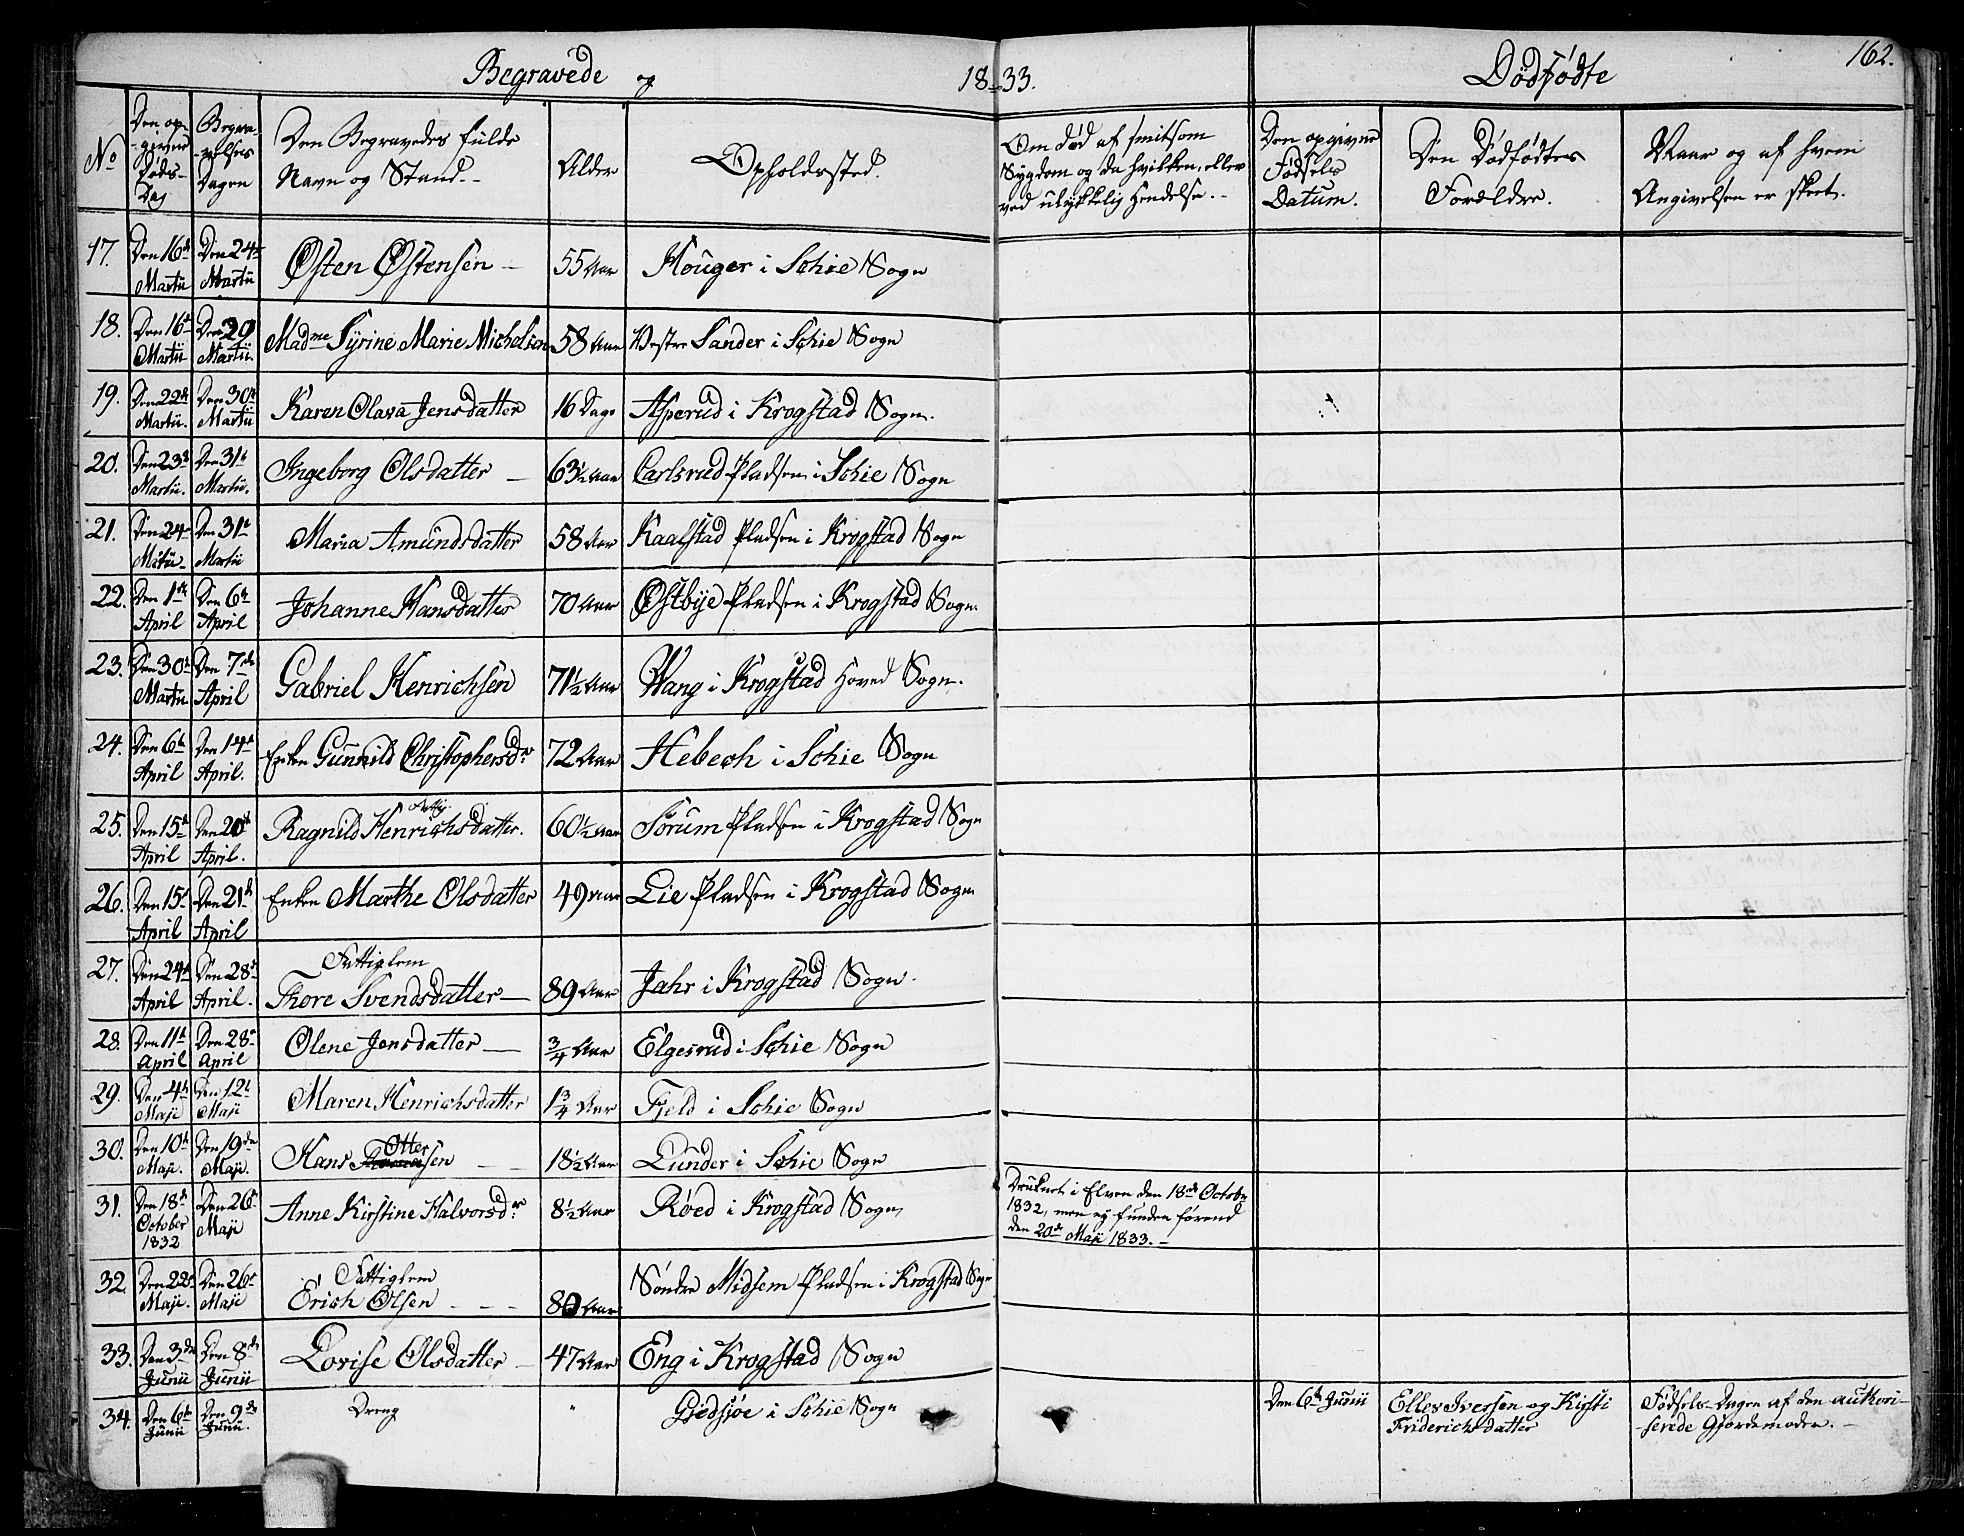 162.
Begravede og 18-33. Dødfødte
No | Den op-givne Døds-Dag | Begra-velses Dagen | Den Begravedes fulde Navn og Stand.- | Alder | Opholdssted. | Om død af smitsom Sygdom og da hvilken, eller ved ulykkelig Hendelse.- | Den opgivne Fødsels Datum. | Den Dødfødtes Forældre. | Naar og af hvem Angivelsen er skeet.
17. Den 16de Martii | Den 24de Martii | Østen Østensen – | 55 Aar | Houger i Schie Sogn
18. Den 16de Martii | Den 20 Martii. | Madme Syrine Marie Michelsen | 58 Aar | Vestre Sander i Schie Sogn
19. Den 22de Martii. | Den 30te Martii | Karen Olava Jensdatter | 16 Dage | Asperud i Krogstad Sogn.
20. Den 23de Martii. | Den 31te Martii. | Ingeborg Olsdatter – | 63½ Aar | Carlsrud Pladsen i Schie Sogn
21. Den 24de Mstii- | Den 31te Martii | Maria Amundsdatter | 58 Aar | Kaalstad Pladsen i Krogstad Sogn
22. Den 1ste April | Den 6te April | Johanne Hansdatter | 70 Aar | Østbye Pladsen i Krogstad Sogn.
23. Den 30te Martii | Den 7de April | Gabriel Henrichsen | 71½ Aar | Wang i Krogstad Hoved Sogn.
24. Den 6te April | Den 14de April. | Enken Gunnild Christophersdr | 72 Aar | Hebech i Schie Sogn
25. Den 15de April | Den 20de April. | Ragnild Henrichsdatter. | 60½ Aar | Sörum Pladsen i Krogstad Sogn
26. Den 15de April | Den 21de April | Enken Marthe Olsdatter | 49 Aar | Lie Pladsen i Krogstad Sogn
27. Den 24de April | Den 28de April. | Fattiglem Thore Svendsdatter – | 89 Aar | Jahr i Krogstad Sogn.
28. Den 11te April | Den 28de April | Olene Jensdatter – | ¾ Aar | Elgesrud i Schie Sogn
29. Den 4de Maji | Den 12te Maji | Maren Henrichsdatter | 1¾ Aar | Fjeld i Schie Sogn
30. Den 10de Maji. | Den 19de Maji. | Hans Ottersen – – | 18½ Aar | Lunder i Schie Sogn
31. Den 18de October 1832 | Den 26de Maji | Anne Kirstine Halvorsdr | 8½ Aar | Røed i Krogstad Sogn | Druknet i Elven den 18de Octobr 1832, men ej funden førend den 20de Maji 1833.–
32. Den 22de Maji. | Den 26de Maji | Fattiglem Erich Olsen – – – | 80 Aar | Søndre Midsem Pladsen i Krogstad Sogn
33. Den 3de Junii | Den 8de Junii | Lovise Olsdatter – | 47 Aar | Eng i Krogstad Sogn
34. Den 6te Junii | Den 9de Junii. | Dreng | " | Gjedsjøe i Schie Sogn | Den 6te Junii | Ellev Iversen og Kirsti Friderichsdatter | Fødsels-Dagen af den authori-serede Gjordemoder.–